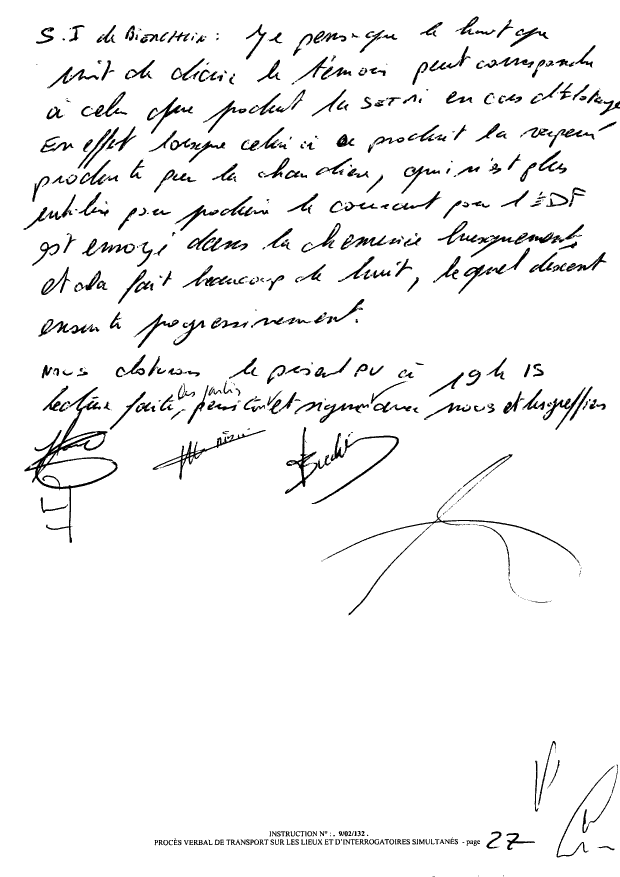 S.I de Biechelin : Je pense que le bruit que
vient de décrire le témoin peut correspondre
à celui que produit la SETMI en cas d'îlotage
En effet lorsque celui-ci se produit la vapeur
produite par la chaudière, qui n'est plus
utilisée pour produire le courant pour l'EDF
est envoyé dans la cheminée brusquement
et cela fait beaucoup de bruit, lequel descend
ensuite progressivement.
Nous clôturons le présent PV à 19 h 15
lecture faite, les parties persistent et signent avec nous et les greffiers
INSTRUCTION N° : . 9/02/132 .
PROCÈS VERBAL DE TRANSPORT SUR LES LIEUX ET D'INTERROGATOIRES SIMULTANÉS - page 27